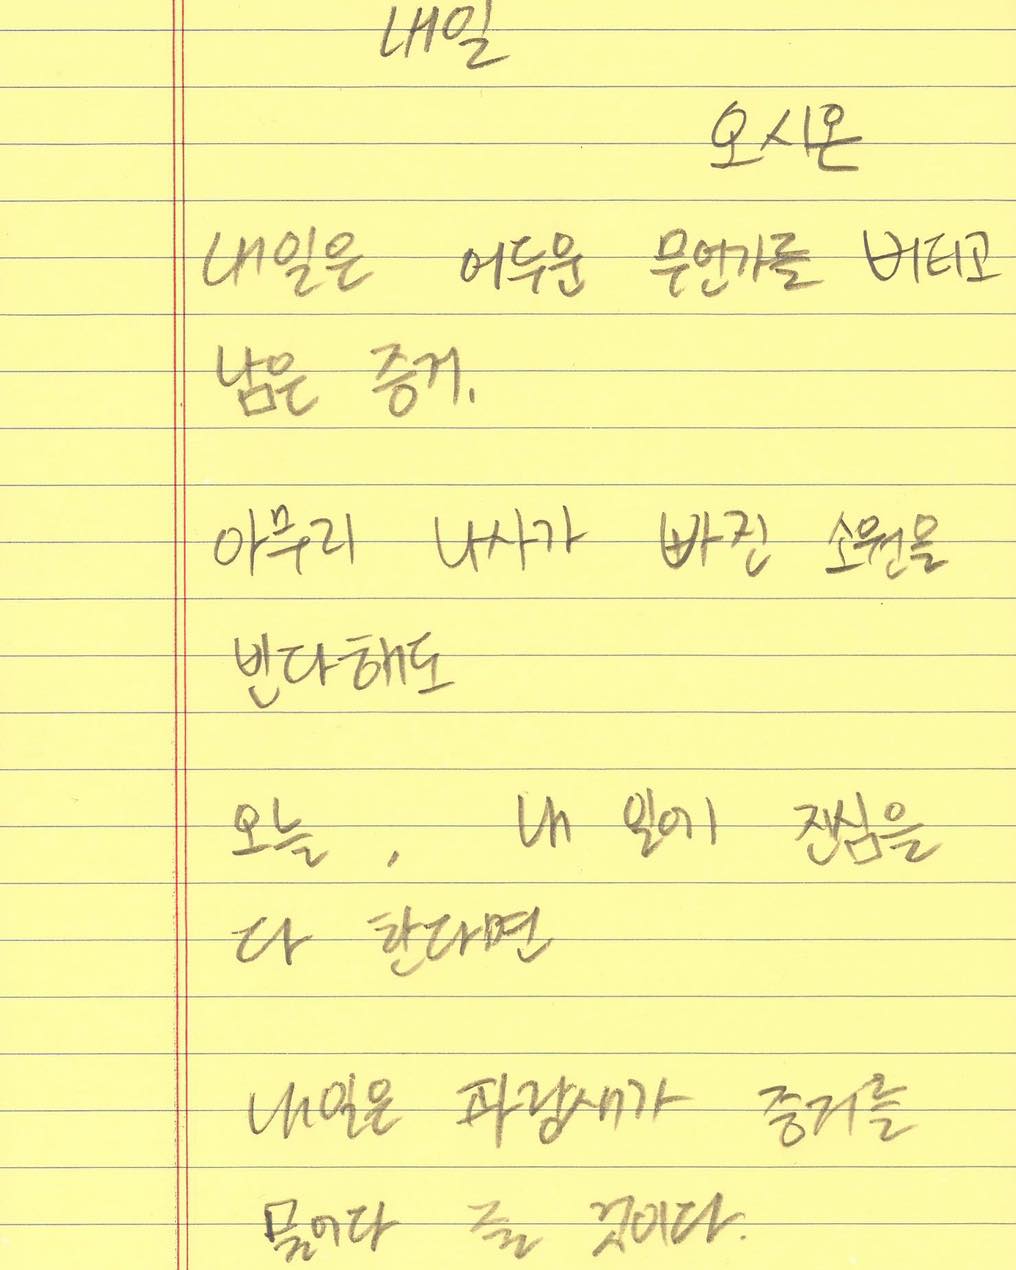 내일
오시온
내일은 어두운 무언가를 버티고
남은 증거.
아무리 나사가 빠진 소원을
빈다해도
오늘, 내 일에 진심을
다 한다면
내일은 파랑새가 증거를
물어다 줄 것이다.